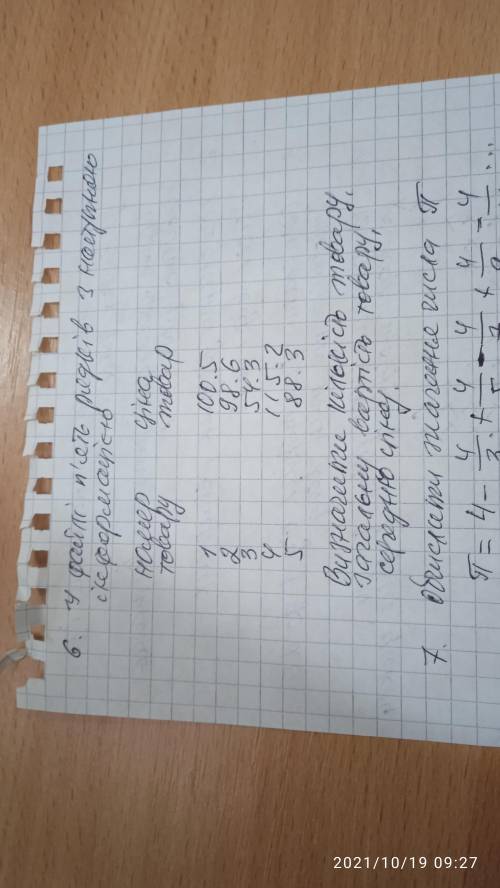 6. У файлі п'ять рядків з наступною
інформацією
номер ціна
товару товар
1 100.5
2 98.6
3 54.3
4 115.2
5 88.3
Визначити кількість товару,
загальну вартість товару,
середню ціну.
7. Обчислити значення числа π
π = 4 - 4/3 + 4/5 - 4/7 + 4/9 - 4/ ...
2021/10/19 09:27